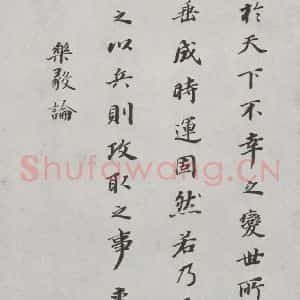 於天下不幸之變世所
垂成時運固然若乃
之以兵則攻取之事
樂毅論
Shufawang.CN